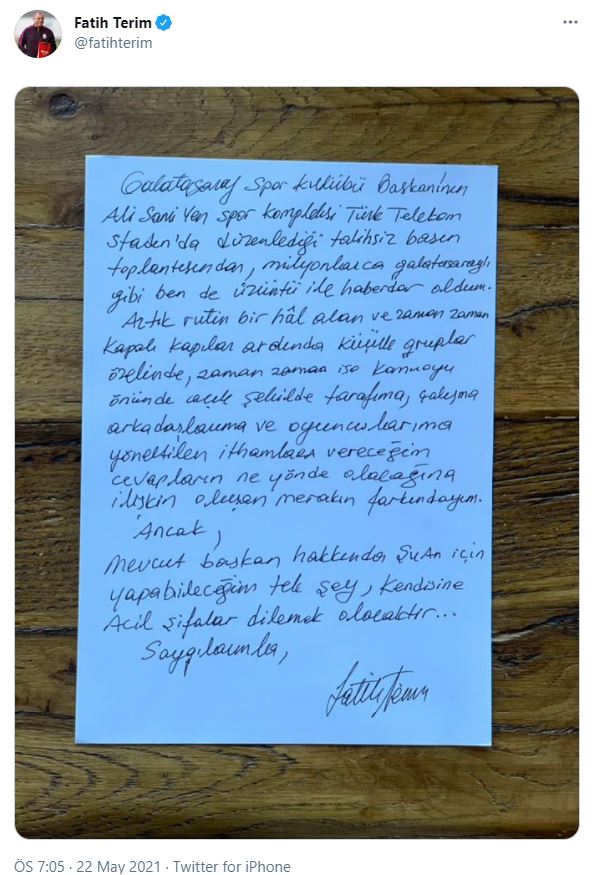 Fatih Terim
@fatihterim
Galatasaray Spor Kulübü Başkanı'nın
Ali Sami Yen Spor Kompleksi Türk Telekom
Stadı'nda düzenlediği talihsiz basın
toplantısından, milyonlarca galatasaraylı
gibi ben de üzüntü ile haberdar oldum.
Artık rutin bir hâl alan ve zaman zaman
kapalı kapılar ardında küçük gruplar
özelinde, zaman zaman ise kamuoyu
önünde açık şekilde tarafıma, çalışma
arkadaşlarıma ve oyuncularıma
yöneltilen ithamlara vereceğim
cevapların ne yönde olacağına
ilişkin oluşan merakın farkındayım.
Ancak,
Mevcut başkan hakkında şu an için
yapabileceğim tek şey, kendisine
Acil şifalar dilemek olacaktır...
Saygılarımla,
Fatih Terim
ÖS 7:05 · 22 May 2021 · Twitter for iPhone